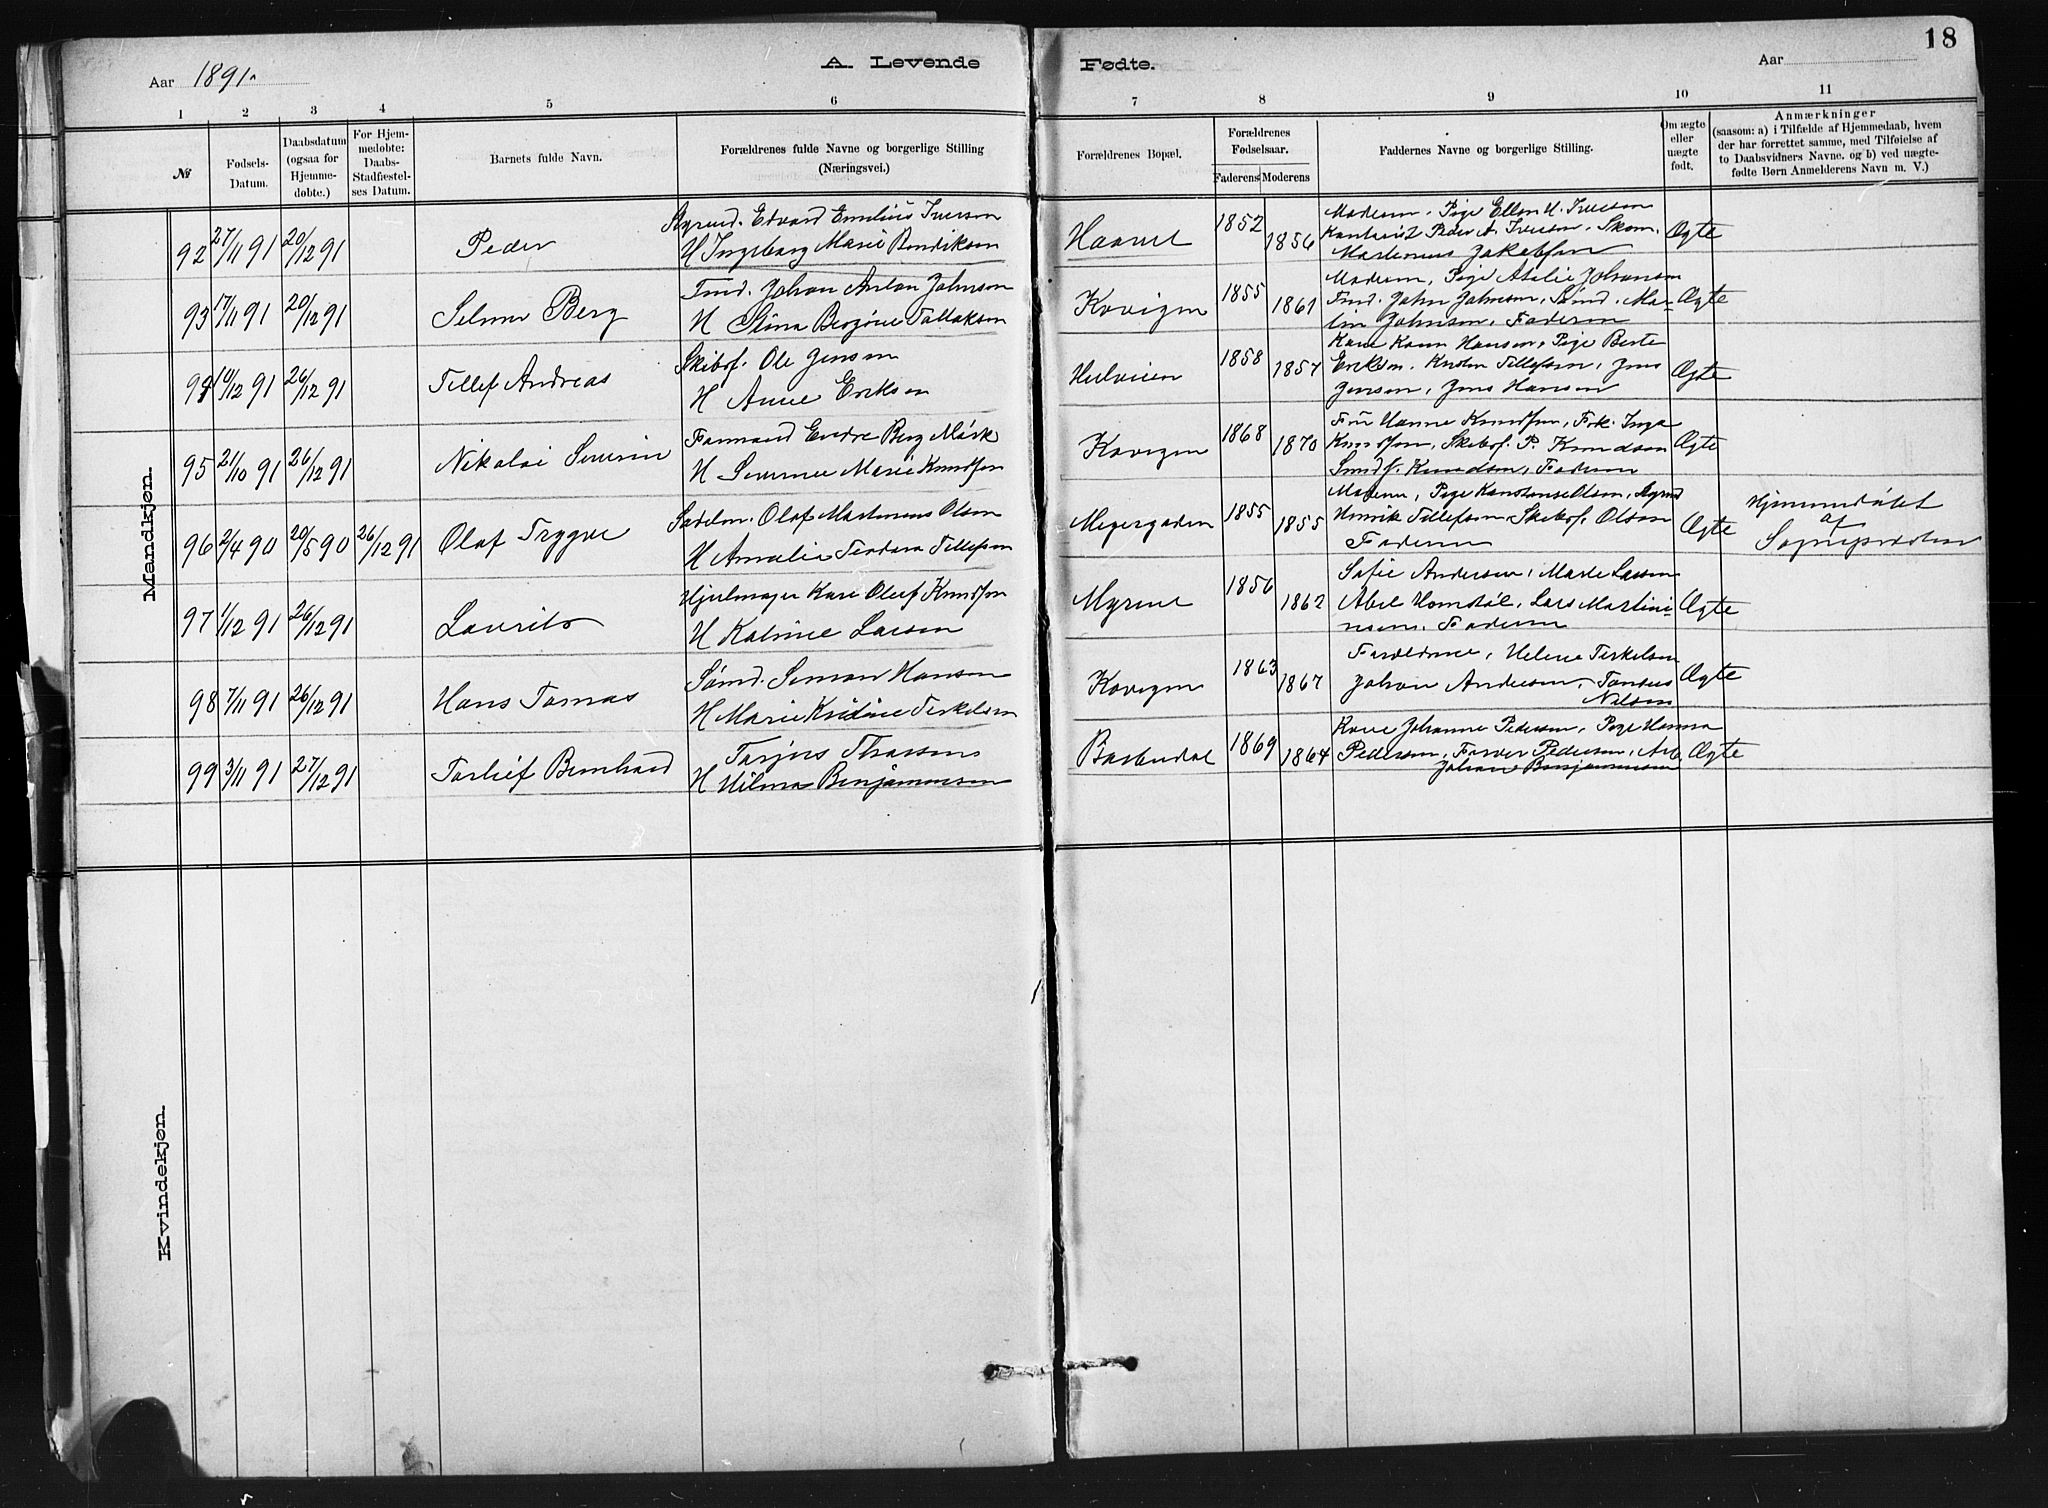 18
Aar 1891.
A. Levende Fødte.
Aar
1 2 3 4 5 6 7 8 9 10 11
№
Fødsels-
Datum.
Daabsdatum
(ogsaa for
Hjemme-
døbte.)
For Hjem-
medøbte:
Daabs-
Stadfæstel-
ses Datum.
Barnets fulde Navn.
Forældrenes fulde Navne og borgerlige Stilling
(Næringsvei.)
Forældrenes Bopæl.
Forældrenes
Fødselsaar.
Faderens Moderens
Faddernes Navne og borgerlige Stilling.
Om ægte
eller
uægte
født.
Anmærkninger
(saasom: a) i Tilfælde af Hjemmedaab, hvem
der har forrettet samme, med Tilføielse af
to Daabsvidners Navne. og b) ved uægte-
fødte Børn Anmelderens Navn m. V.)
Mandkjøn.
92 27/11 91 20/12 91 Peder
Styrmd. Edvard Emilius Iversen
H Ingeborg Marie Bendiksen
1852 1856
Moderen, Pige Ellen M. Iversen
Kontorist Peder A. Iversen, Skom.
Jakobsen
Ægte
93 17/11 91 20/12 91 Selmer Berg
Tmd. Johan Anton Johnsen
H Stina Bergine Tallaksen
Kovigen 1855 1861
Moderen, Pige Atalie Johansen
Tmd. John Johnsen, Sømd. Mar-
tin Johnsen, Faderen
Ægte
94 10/12 91 26/12 91 Tellef Andreas
Skibsf. Ole Jensen
H Anne Eriksen
1858 1857
Kone Karen Hansen, Pige Berte
Eriksen, Tellefsen, Jens
Jensen, Jens Hansen
Ægte
95 21/10 91 26/12 91 Nikolai Severin
Formand Endre Berg Mörk
H Severine Marie Knudsen
Kovigen 1868 1870
Fru Hanne Knudsen, Frk. Inga
Knudsen, Skibsf. P. Knudsen
Knudsen, Faderen
Ægte
96 2/4 90 20/5 90 26/12 91 Olaf Trygve
Sadelm. Olaf Martinius Olsen
H Amalie Teodora Tellefsen
Meyergaden 1855 1855
Moderen, Pige Konstanse Olsen, Styrmd
Henrik Tellefsen, Skibsf. Olsen
Faderen
Ægte
Hjemmedøbt
af
Sognepresten
97 1/12 91 26/12 91 Laurits
Hjulmager Karl Oluf Knudsen
H Katrine Larsen
Myrene 1856 1862
Sofie Andersen, Marie Larsen
Abel Homdal, Lars Martini-
nsen, Faderen
Ægte
98 7/11 91 26/12 91 Hans Tomas
Sømd. Simon Hansen
H Marie Kristine Terkelsen
Kovigen 1863 1867
Forældrene, Helene Terkelsen
Johan Andersen,
Nilsen
Ægte
99 3/11 91 27/12 91 Torleif Bernhard
Torjus Thorsen
H Hilma Benjaminsen
Barbudal 1869 1864
Kone Johanne Pedersen, Pige Hanna
Pedersen, Farver Pedersen, Arb.
Johan Benjaminsen
Ægte
Kvindekjøn.